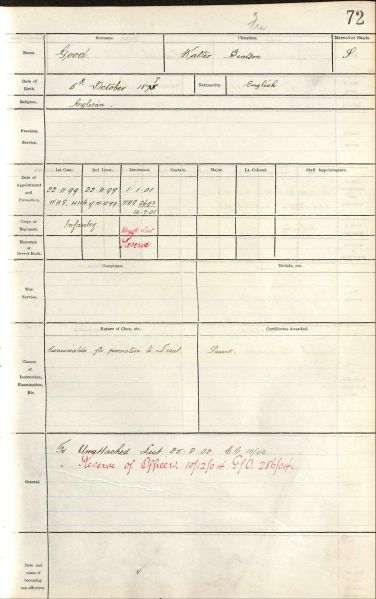 72
Surname. Christian. Married or Single.
Name. Good Walter S
Date of Birth. 5th October Nationality. English
Religion. Anglican
Previous Service.
Date of Appointment and Promotion. 1st Class. 2nd Lieut. Lieutenant. Captain. Major. Lt.-Colonel. Staff Appointments.
22.11.99 22.11.99 1.1.01
Corps or Regiment. Infantry Unatt. List
Honorary or Brevet Rank. Reserve
Campaigns. Medals, etc.
War Service.
Nature of Class, etc. Certificates Awarded.
Examination for promotion to Lieut Passed.
Classes of Instruction, Examination, Etc.
To Unattached List 25.2.02
Reserve of Officers 10/12/04 G/O. 286/04.
General.
Date and cause of becoming non-effective.